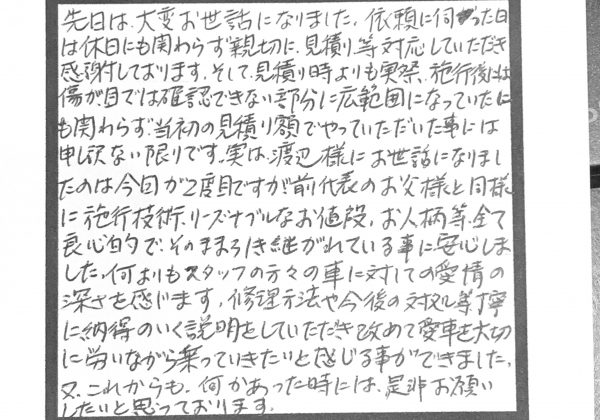 先日は、大変お世話になりました。依頼に伺った日
は休日にも関わらず親切に、見積り等対応していただき
感謝しております。そして、見積り時よりも実祭、施行後には
傷が目では確認できない部分に広範囲になっていたに
も関わらず、当初の見積り額でやっていただいた事には
申し訳ない限りです。実は、渡辺様にお世話になりまし
たのは今回が2度目ですが前代表のお父様と同様
に施行技術、リーズナブルなお値段、お人柄等、全て
良心的で、そのまま引き継がれている事に安心しま
した。何よりもスタッフの方々の車に対しての愛情の
深さを感じます。修理方法や今後の対処等、丁寧
に納得のいく説明をしていただき改めて愛車を大切
に労いながら乗っていきたいと感じる事ができました。
又、これからも、何かあった時には、是非お願い
したいと思っております。